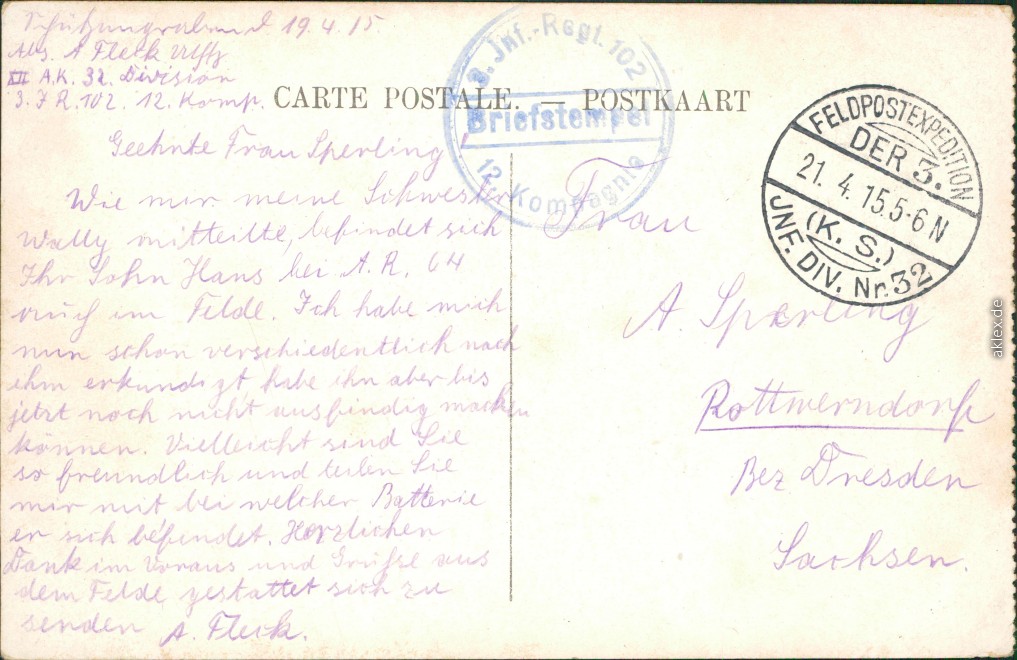 Schützengraben d. 19.4.15.
Abs. A Fleck Uffz
XII A.K. 32. Division
3. J R. 102. 12. Komp.
CARTE POSTALE. — POSTKAART
3. Jnf.-Regt. 102
Briefstempel
12. Kompagnie
FELDPOSTEXPEDITION
DER 3.
21. 4. 15. 5-6 N
(K. S.)
JNF. DIV. Nr. 32
Geehrte Frau Sperling
Wie mir meine Schwester
Wally mitteilte, befindet sich
Ihr Sohn Hans bei A. R. 64
auch im Felde. Ich habe mich
nun schon verschiedentlich nach
ihm erkundigt, habe ihn aber bis
jetzt noch nicht ausfindig machen
können. Vielleicht sind Sie
so freundlich und teilen Sie
mir mit bei welcher Batterie
er sich befindet. Herzlichen
Dank im Voraus und Grüße aus
dem Felde gestattet sich zu
senden A. Fleck.
Frau
A. Sperling
Rottwerndorf
Bez Dresden
Sachsen.
aklex.de